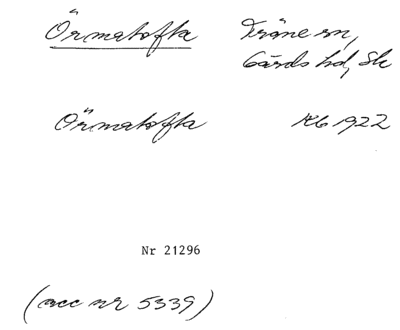 Örmatofta Träne sn,
Gärds hd, Sk
Örmatofta Kb 1922
Nr 21296
(acc nr 5339)